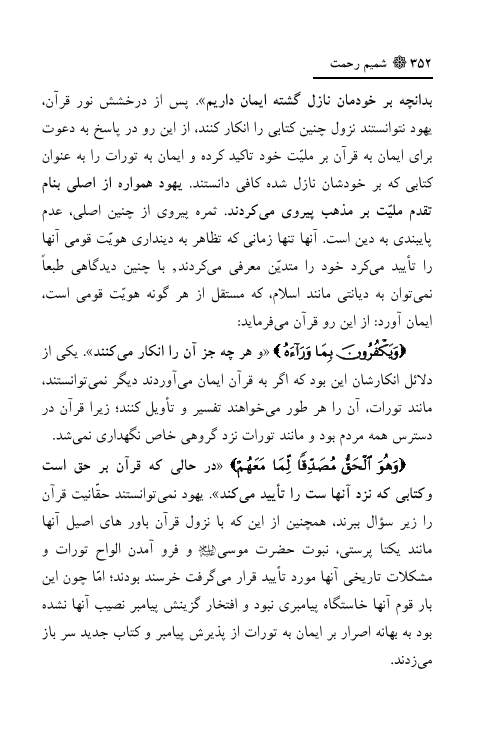 ۳۵۲ شمیم رحمت
بدانچه بر خودمان نازل گشته ایمان داریم». پس از درخشش نور قرآن،
یهود نتوانستند نزول چنین کتابی را انکار کنند، از این رو در پاسخ به دعوت
برای ایمان به قرآن بر ملیّت خود تاکید کرده و ایمان به تورات را به عنوان
کتابی که بر خودشان نازل شده کافی دانستند. یهود همواره از اصلی بنام
تقدم ملیّت بر مذهب پیروی می‌کردند. ثمره پیروی از چنین اصلی، عدم
پایبندی به دین است. آنها تنها زمانی که تظاهر به دینداری هویّت قومی آنها
را تأیید می‌کرد خود را متدیّن معرفی می‌کردند, با چنین دیدگاهی طبعاً
نمی‌توان به دیانتی مانند اسلام، که مستقل از هر گونه هویّت قومی است،
ایمان آورد: از این رو قرآن می‌فرماید:
﴿وَيَكْفُرُونَ بِمَا وَرَآءَهُ﴾ «و هر چه جز آن را انکار می‌کنند». یکی از
دلائل انکارشان این بود که اگر به قرآن ایمان می‌آوردند دیگر نمی‌توانستند،
مانند تورات، آن را هر طور می‌خواهند تفسیر و تأویل کنند؛ زیرا قرآن در
دسترس همه مردم بود و مانند تورات نزد گروهی خاص نگهداری نمی‌شد.
﴿وَهُوَ ٱلْحَقُّ مُصَدِّقًا لِّمَا مَعَهُمْ﴾ «در حالی که قرآن بر حق است
وکتابی که نزد آنها ست را تأیید می‌کند». یهود نمی‌توانستند حقّانیت قرآن
را زیر سؤال ببرند، همچنین از این که با نزول قرآن باور های اصیل آنها
مانند یکتا پرستی، نبوت حضرت موسی و فرو آمدن الواح تورات و
مشکلات تاریخی آنها مورد تأیید قرار می‌گرفت خرسند بودند؛ امّا چون این
بار قوم آنها خاستگاه پیامبری نبود و افتخار گزینش پیامبر نصیب آنها نشده
بود به بهانه اصرار بر ایمان به تورات از پذیرش پیامبر و کتاب جدید سر باز
می‌زدند.